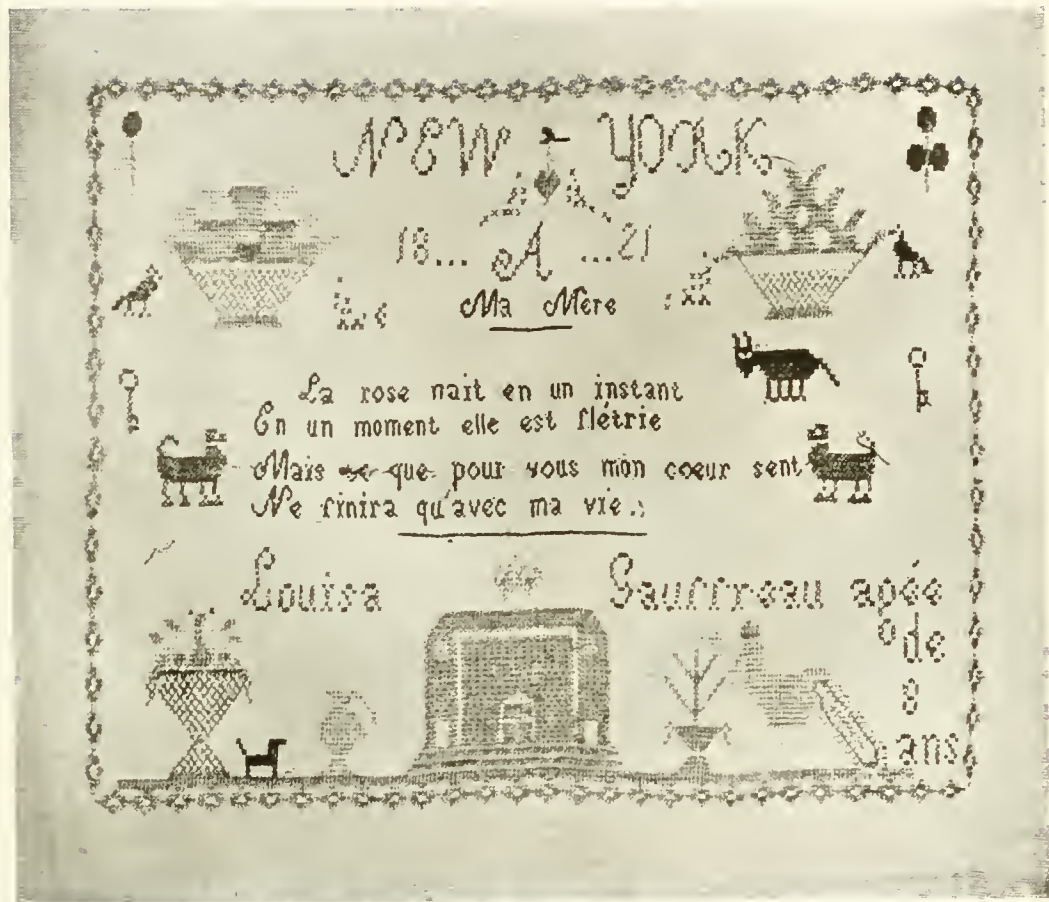 NEW YORK
18... A ...21
Ma Mère
La rose nait en un instant
En un moment elle est flétrie
Mais ce que pour vous mon coeur sent
Ne finira qu'avec ma vie.
Louisa Gauffreau agée
de
8
ans